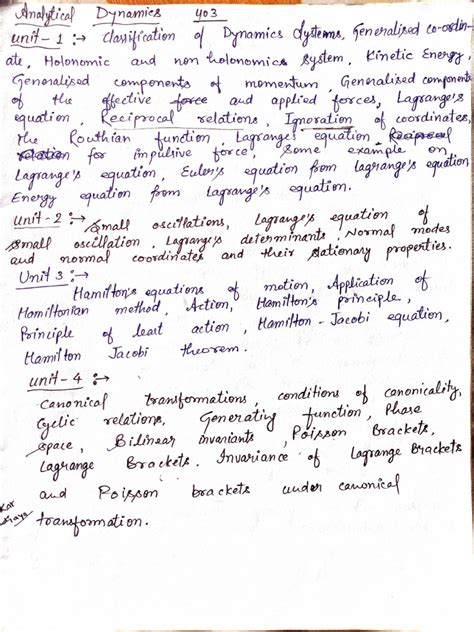 Analytical Dynamics 403
Unit-1 :→ Classification of Dynamics Systems, Generalised co-ordin-
ate, Holonomic and non holonomics system, Kinetic Energy,
Generalised components of momentum, Generalised components
of the effective force and applied forces, Lagrange's
equation, Reciprocal relations, Ignoration of coordinates,
The Routhian function Lagranges equation Reciprocal
relation for impulsive force, Some example on
Lagrange's equation, Euler's equation from lagrange's equation
Energy equation from Lagrange's equation.
Unit-2 :→ Small oscillations, Lagrange's equation of
Small oscillation, Lagrange's determinants, Normal modes
and normal coordinates and their stationary properties.
Unit 3 :→
Hamilton's equations of motion, Application of
Hamiltonian method, Action, Hamilton's principle,
Principle of least action, Hamilton-Jacobi equation,
Hamilton Jacobi theorem.
Unit-4 :→
Canonical transformations, conditions of canonicality,
Cyclic relations, Generating function, Phase
space, Bilinear invariants, Poisson Brackets,
Lagrange Brackets. Invariance of Lagrange Brackets
and Poisson brackets under canonical
transformation.